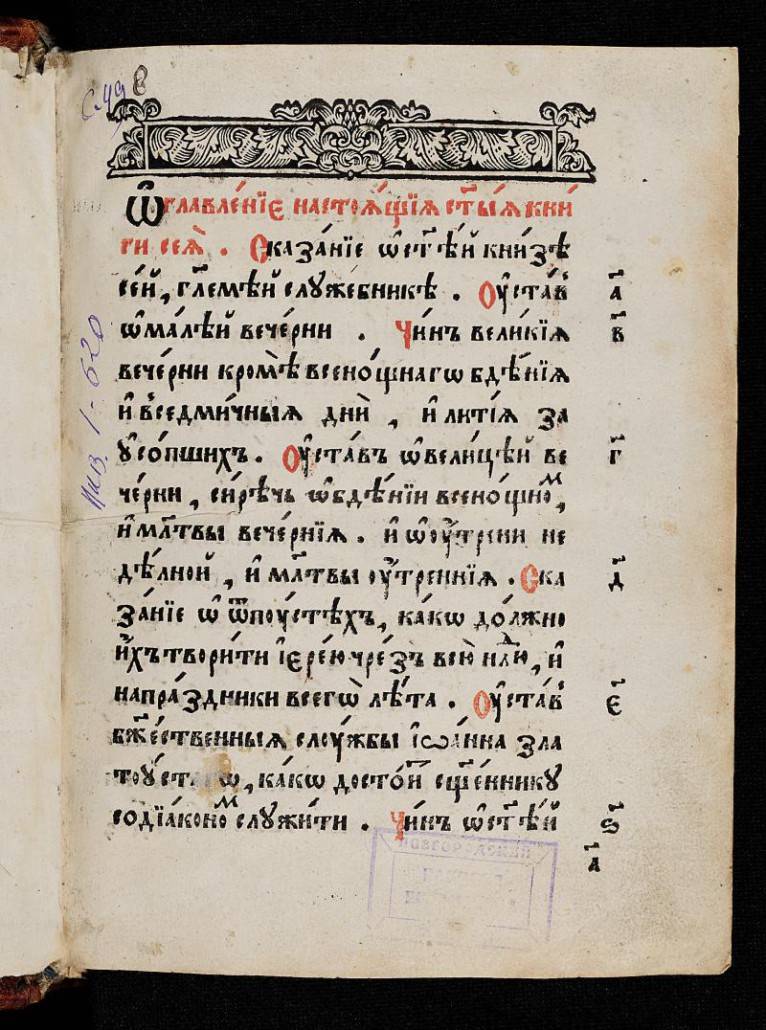 С.49 8
Ѡ҆главле́нїе настоѧ́щїѧ ст҃ы́ѧ кни́
ги сеѧ̀ . Сказа́нїе ѡ҆ст҃ѣ́й кни́зѣ
се́й, гл҃емѣ́й слꙋже́бникѣ . Оу҆ста́въ а҃
ѡ҆ма́лѣй вече́рни . Чи́нъ вели́кїѧ в҃
вече́рни кромѣ̀ всено́щнагѡ бдѣ́нїѧ
и҆ вседми́чныѧ днѝ , и҆ литі́ѧ за
ᲂу҆со́пшихъ . Оу҆ста́въ ѡ҆вели́цѣй ве г҃
че́рни , си́рѣчь ѡ҆бдѣ́нїи всено́щноⷨ,
и҆ мл҃твы вече́рнїѧ . и҆ ѡ҆ᲂу҆́трени не
дѣ́лной , и҆ мл҃твы ᲂу҆́треннїѧ . Ска д҃
за́нїе ѡ҆ ѿпꙋ́стѣхъ , ка́кѡ до́лжно
и҆́хъ твори́ти і҆ере́ю чре́зъ всю̀ нⷣлю , и҆
напра́здники всегѡ̀ лѣ́та . Оу҆ста́въ є҃
бж҃е́ственныѧ слꙋ́жбы і҆ѡа́нна зла
тоꙋ́стагѡ , ка́кѡ досто́итъ сщ҃е́нникꙋ
содїа́кономъ слꙋжи́ти . Чи́нъ ѡ҆ст҃ѣ́й ѕ҃
а҃
Инв. 1-620
НОВГОРОДСКИЙ